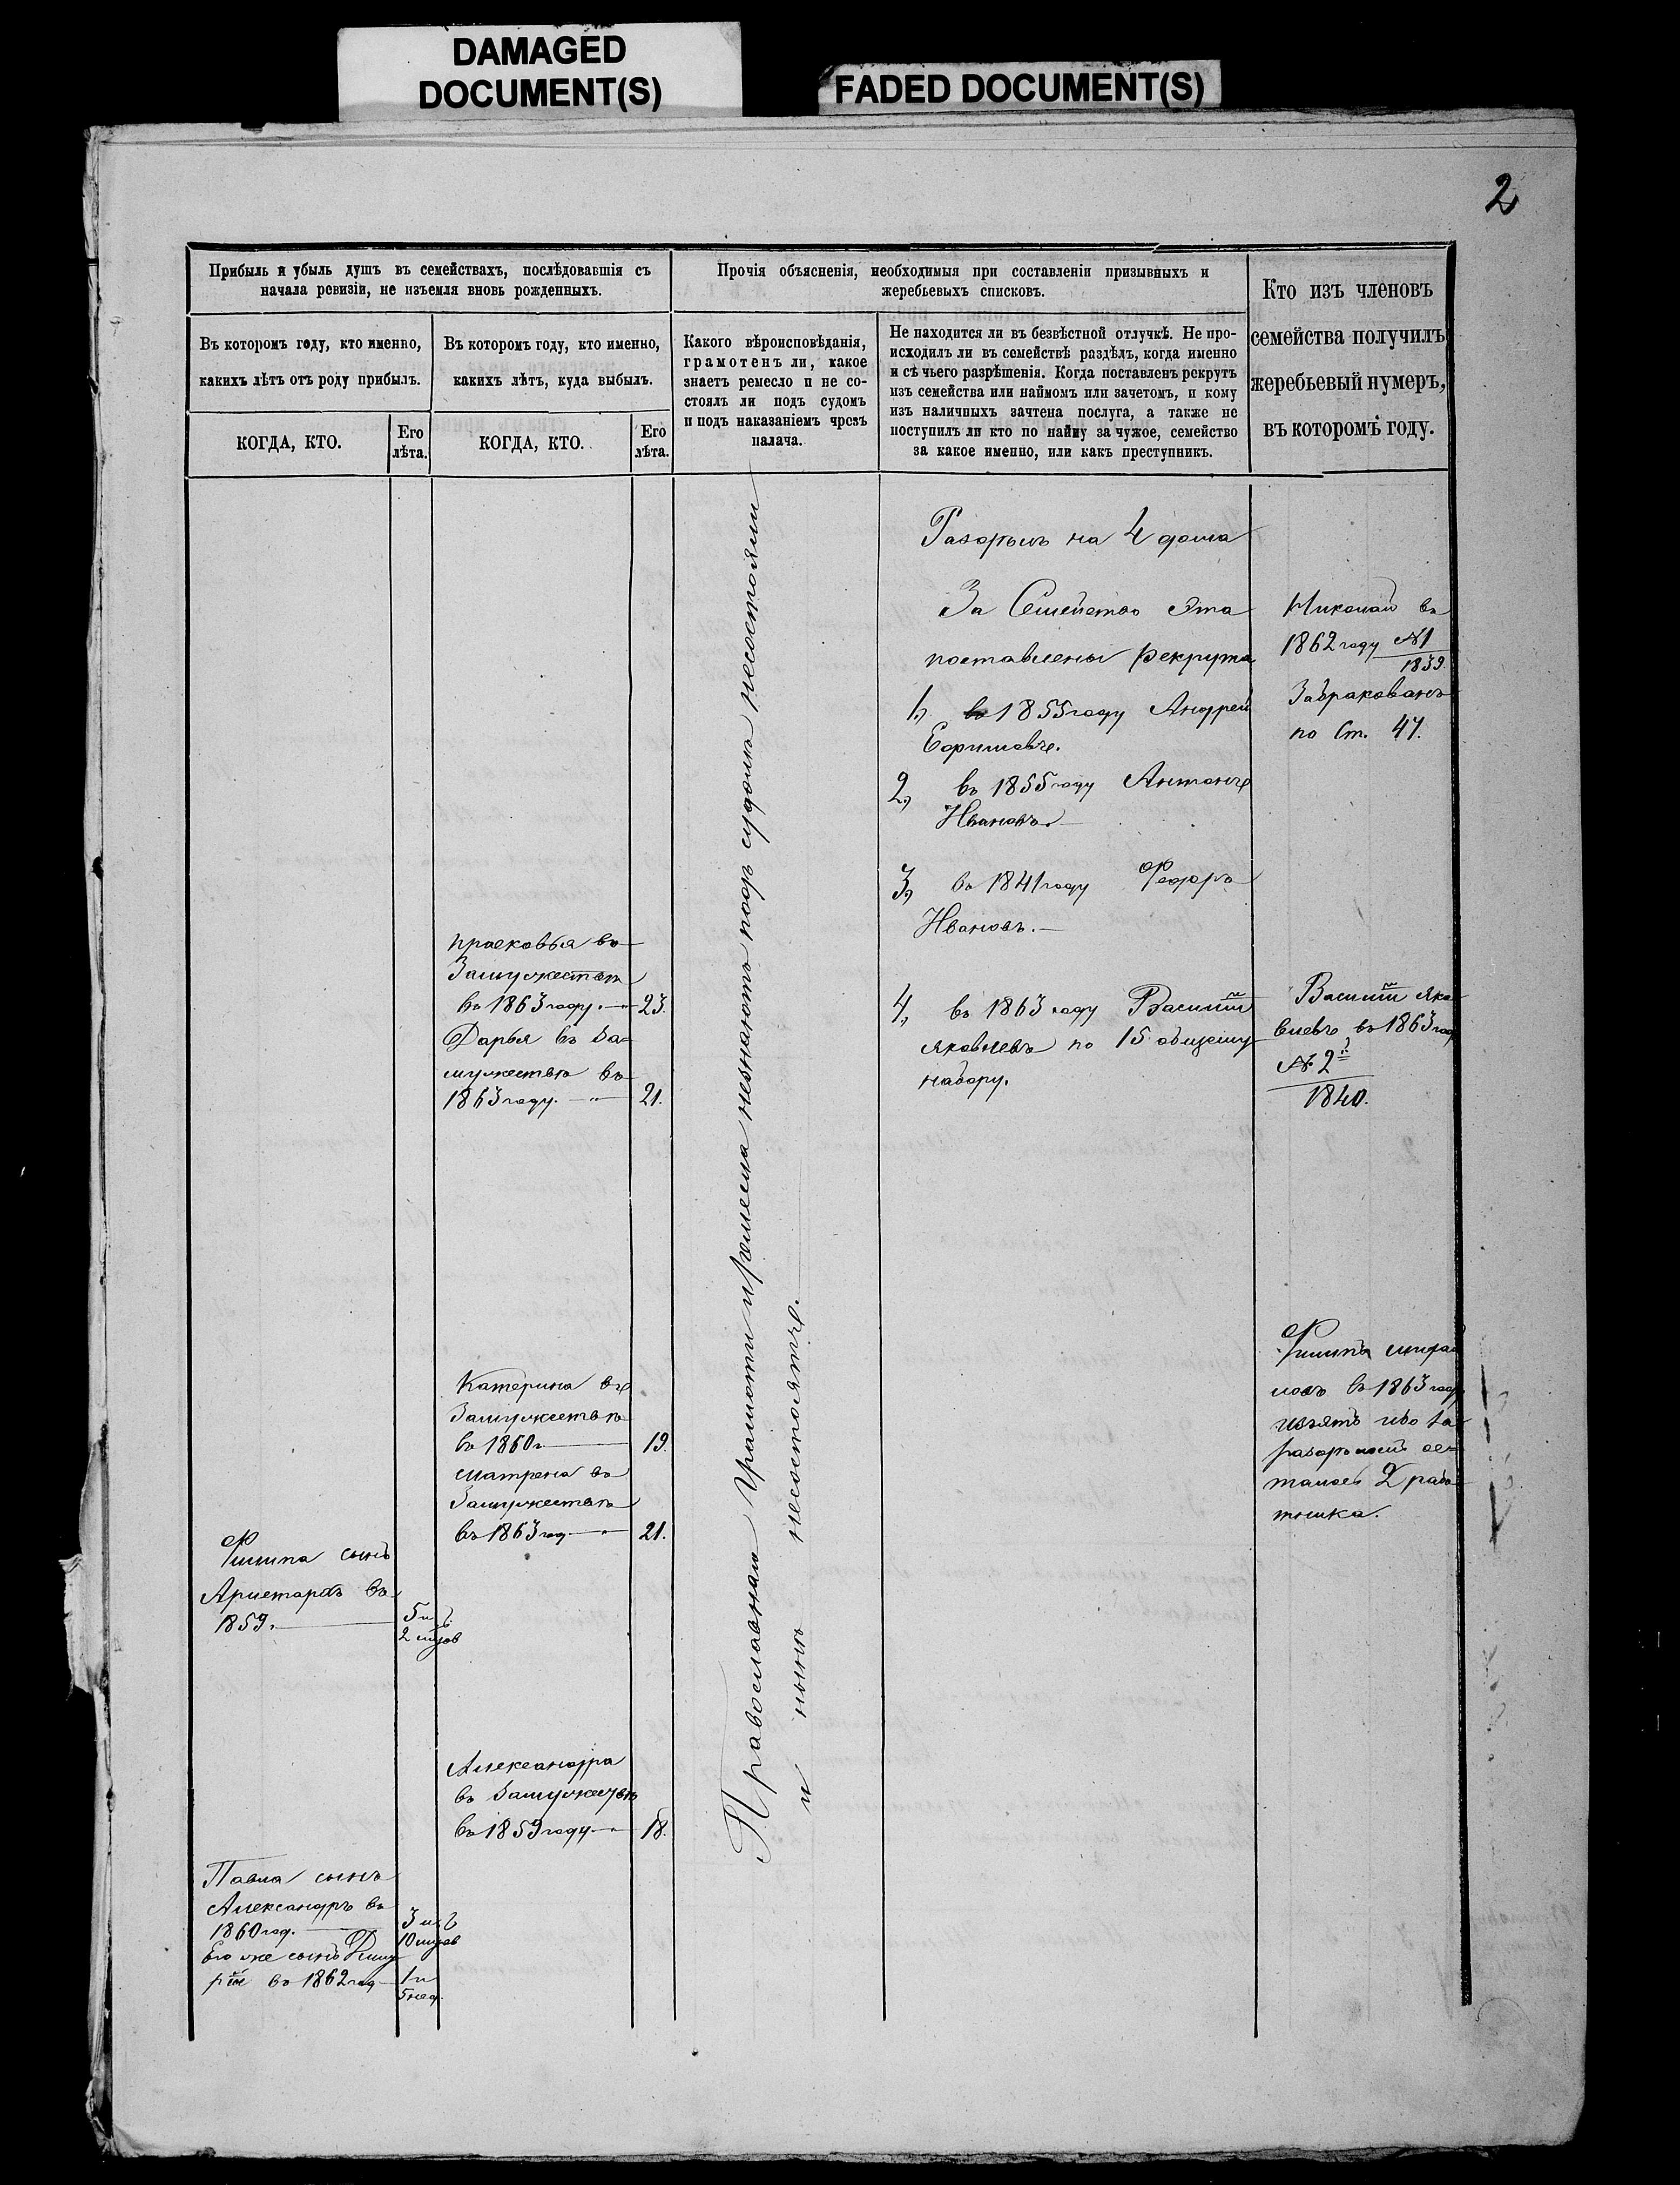 DAMAGED
DOCUMENT(S)
FADED DOCUMENT(S)
2
Прибыль и убыль душъ въ семействахъ, послѣдовавшія съ
начала ревизіи, не изъемля вновь рожденныхъ.
Въ которомъ году, кто именно,
какихъ лѣтъ отъ роду прибылъ.
КОГДА, КТО.
Его
лѣта.
Въ которомъ году, кто именно,
какихъ лѣтъ, куда выбылъ.
КОГДА, КТО.
Его
лѣта.
Прочія объясненія, необходимыя при составленіи призывныхъ и
жеребьевыхъ списковъ.
Какого вѣроисповѣданія,
грамотенъ ли, какое
знаетъ ремесло и не со-
стоялъ ли подъ судомъ
и подъ наказаніемъ чрезъ
палача.
Не находится ли въ безвѣстной отлучкѣ. Не про-
исходилъ ли въ семействѣ раздѣлъ, когда именно
и съ чьего разрѣшенія. Когда поставленъ рекрутъ
изъ семейства или наймомъ или зачетомъ, и кому
изъ наличныхъ зачтена послуга, а также не
поступилъ ли кто по найму за чужое, семейство
за какое именно, или какъ преступникъ.
Кто изъ членовъ
семейства получилъ
жеребьевый нумеръ,
въ которомъ году.
Филипа сынъ
Аристархъ въ
1859.
5 л
2 мцов
Павла сынъ
Александръ въ
1860 год.
3 л
10 мцов
Его же сынъ Дмит
рій въ 1862 год
1 л
5 нед.
прасковья въ
Замужествѣ
въ 1863 году. 23.
Дарья въ За=
мужествѣ въ
1863 году. 21.
Катерина въ
Замужествѣ
въ 1860 19.
матрена въ
Замужествѣ
въ 1863 год 21.
Александра
въ Замужествѣ
въ 1859 году 18.
Православнаго Грамоти и ремесла незнаютъ подъ судомъ несостояли
и нынѣ несостоятъ.
Раздѣлъ на 4 дома
За Семейство Эта
поставлены рекрута
1, въ 1855 году Андрей
Ефимовъ.
2, въ 1855 году Антонъ
Ивановъ.
3, въ 1841 году Федоръ
Ивановъ.
4, въ 1863 году Василій
яковлевъ по 15 общему
набору.
Николай въ
1862 году №1
1839.
Забракованъ
по Ст. 47.
Василій яко
влевъ въ 1863 год
№ 2й
1840.
Филипъ
въ 1863 году
изъятъ ибо за
ос=
талось 2 рабо
тника.